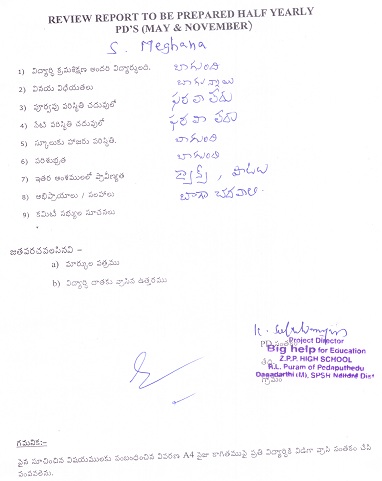 REVIEW REPORT TO BE PREPARED HALF YEARLY
PD'S (MAY & NOVEMBER)
S. Meghana
1) విద్యార్థి క్రమశిక్షణ అందరి విద్యార్థులంది. బాగుంది
2) వినయ విధేయతలు బాగున్నాయి
3) పూర్వపు పరిస్థితి చదువులో ఫరవాలేదు
4) నేటి పరిస్థితి చదువులో ఫరవాలేదు
5) స్కూలుకు హాజరు పరిస్థితి. బాగుంది
6) పరిశుభ్రత బాగుంది
7) ఇతర అంశములలో ప్రావీణ్యత డ్యాన్స్, పాటలు
8) అభిప్రాయాలు / సలహాలు బాగా చదవాలి.
9) కమిటీ సభ్యుల సూచనలు
జతపరచవలసినవి :-
a) మార్కుల పత్రము
b) విద్యార్థి దాతకు వ్రాసిన ఉత్తరము
PD సంతకం
Project Director
Big help for Education
Z.P.P. HIGH SCHOOL
R.L. Puram of Pedaputhedu
Dagadarthi (M), SPSR Nellore Dist
గ్రామం
గమనిక:-
పైన సూచించిన విషయములకు సంబంధించిన వివరణ A4 సైజు కాగితముపై ప్రతి విద్యార్థికి విడిగా వ్రాసి సంతకం చేసి
పంపవలెను.